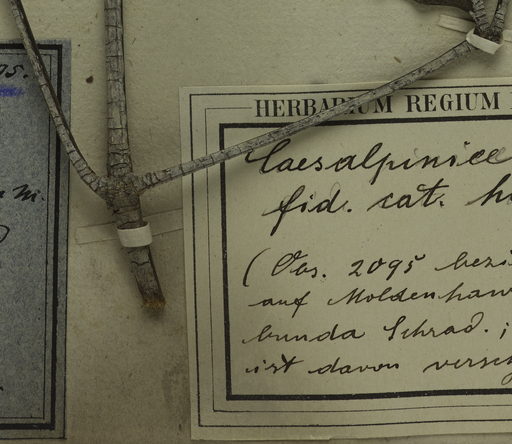 95.
HERBARIUM REGIUM
Caesalpiniee
fid. cat.
(Obs. 2095
auf Moldenhaw
bunda Schrad. ;
ist davon versch